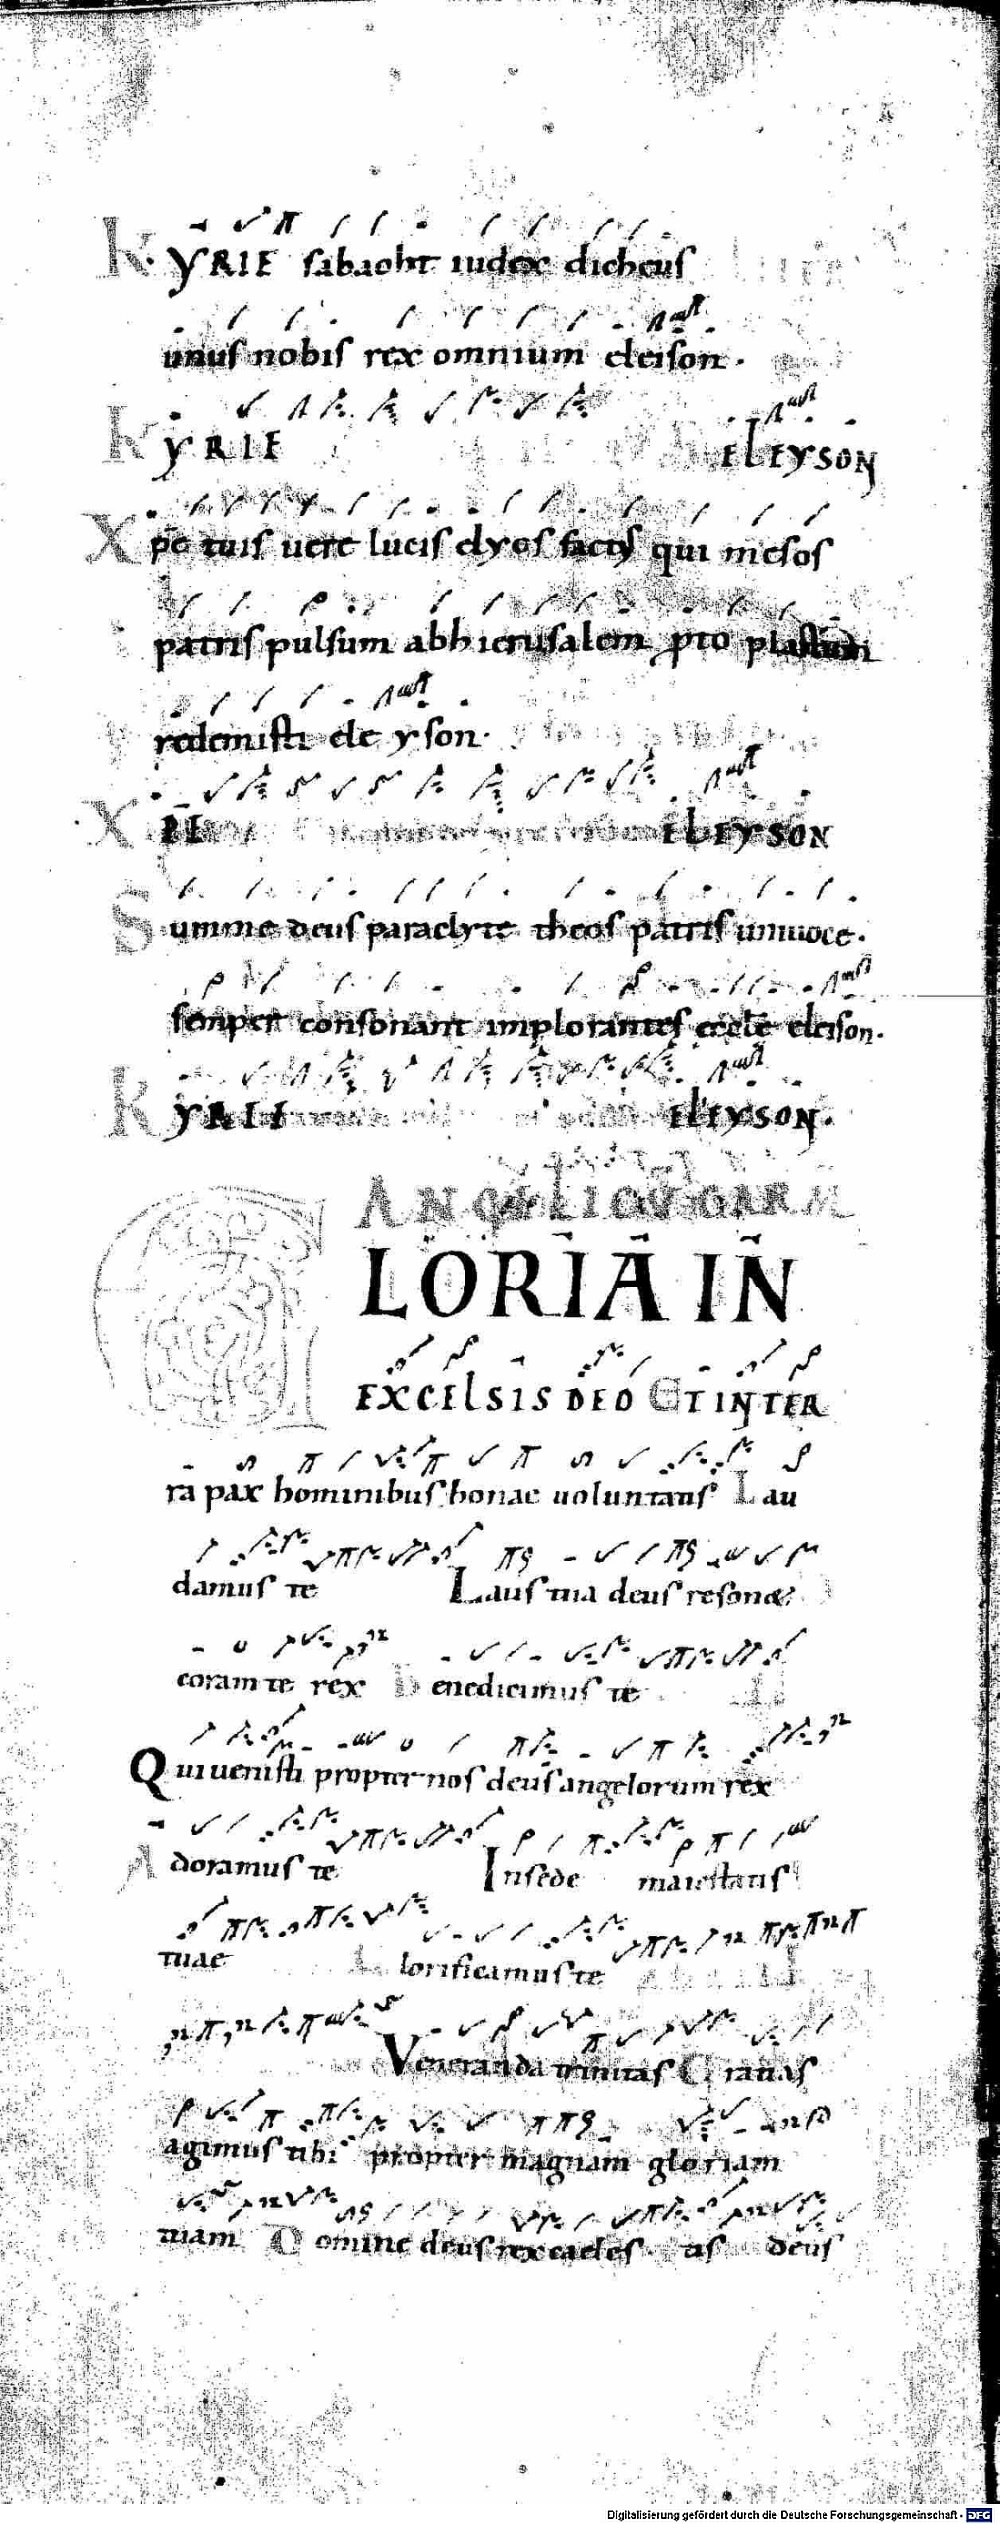 KYRIE sabaoht iudex dicheus
unus nobis rex omnium eleison.
KYRIE ELEYSON
Xpe tuis uere lucis elyos factus qui mesos
patris pulsum abhierusalem pto plastum
redemisti ele yson.
XPE ELEYSON
Summe deus paraclyte theos patris uniuoce.
semper consonant implorantes eccle eleison.
KYRIE ELEYSON.
ANGELICU CARM
GLORIA IN
EXCELSIS DEO ET IN TER
ra pax hominibus bonae uoluntatis Lau
damus te Laus tua deus resonet
coram te rex Benedicimus te
Qui uenisti propter nos deus angelorum rex
Adoramus te In sede maiestatis
tuae Glorificamus te
Veneranda trinitas Gratias
agimus tibi propter magnam gloriam
tuam Domine deus rex caeles tis deus
Digitalisierung gefördert durch die Deutsche Forschungsgemeinschaft - DFG